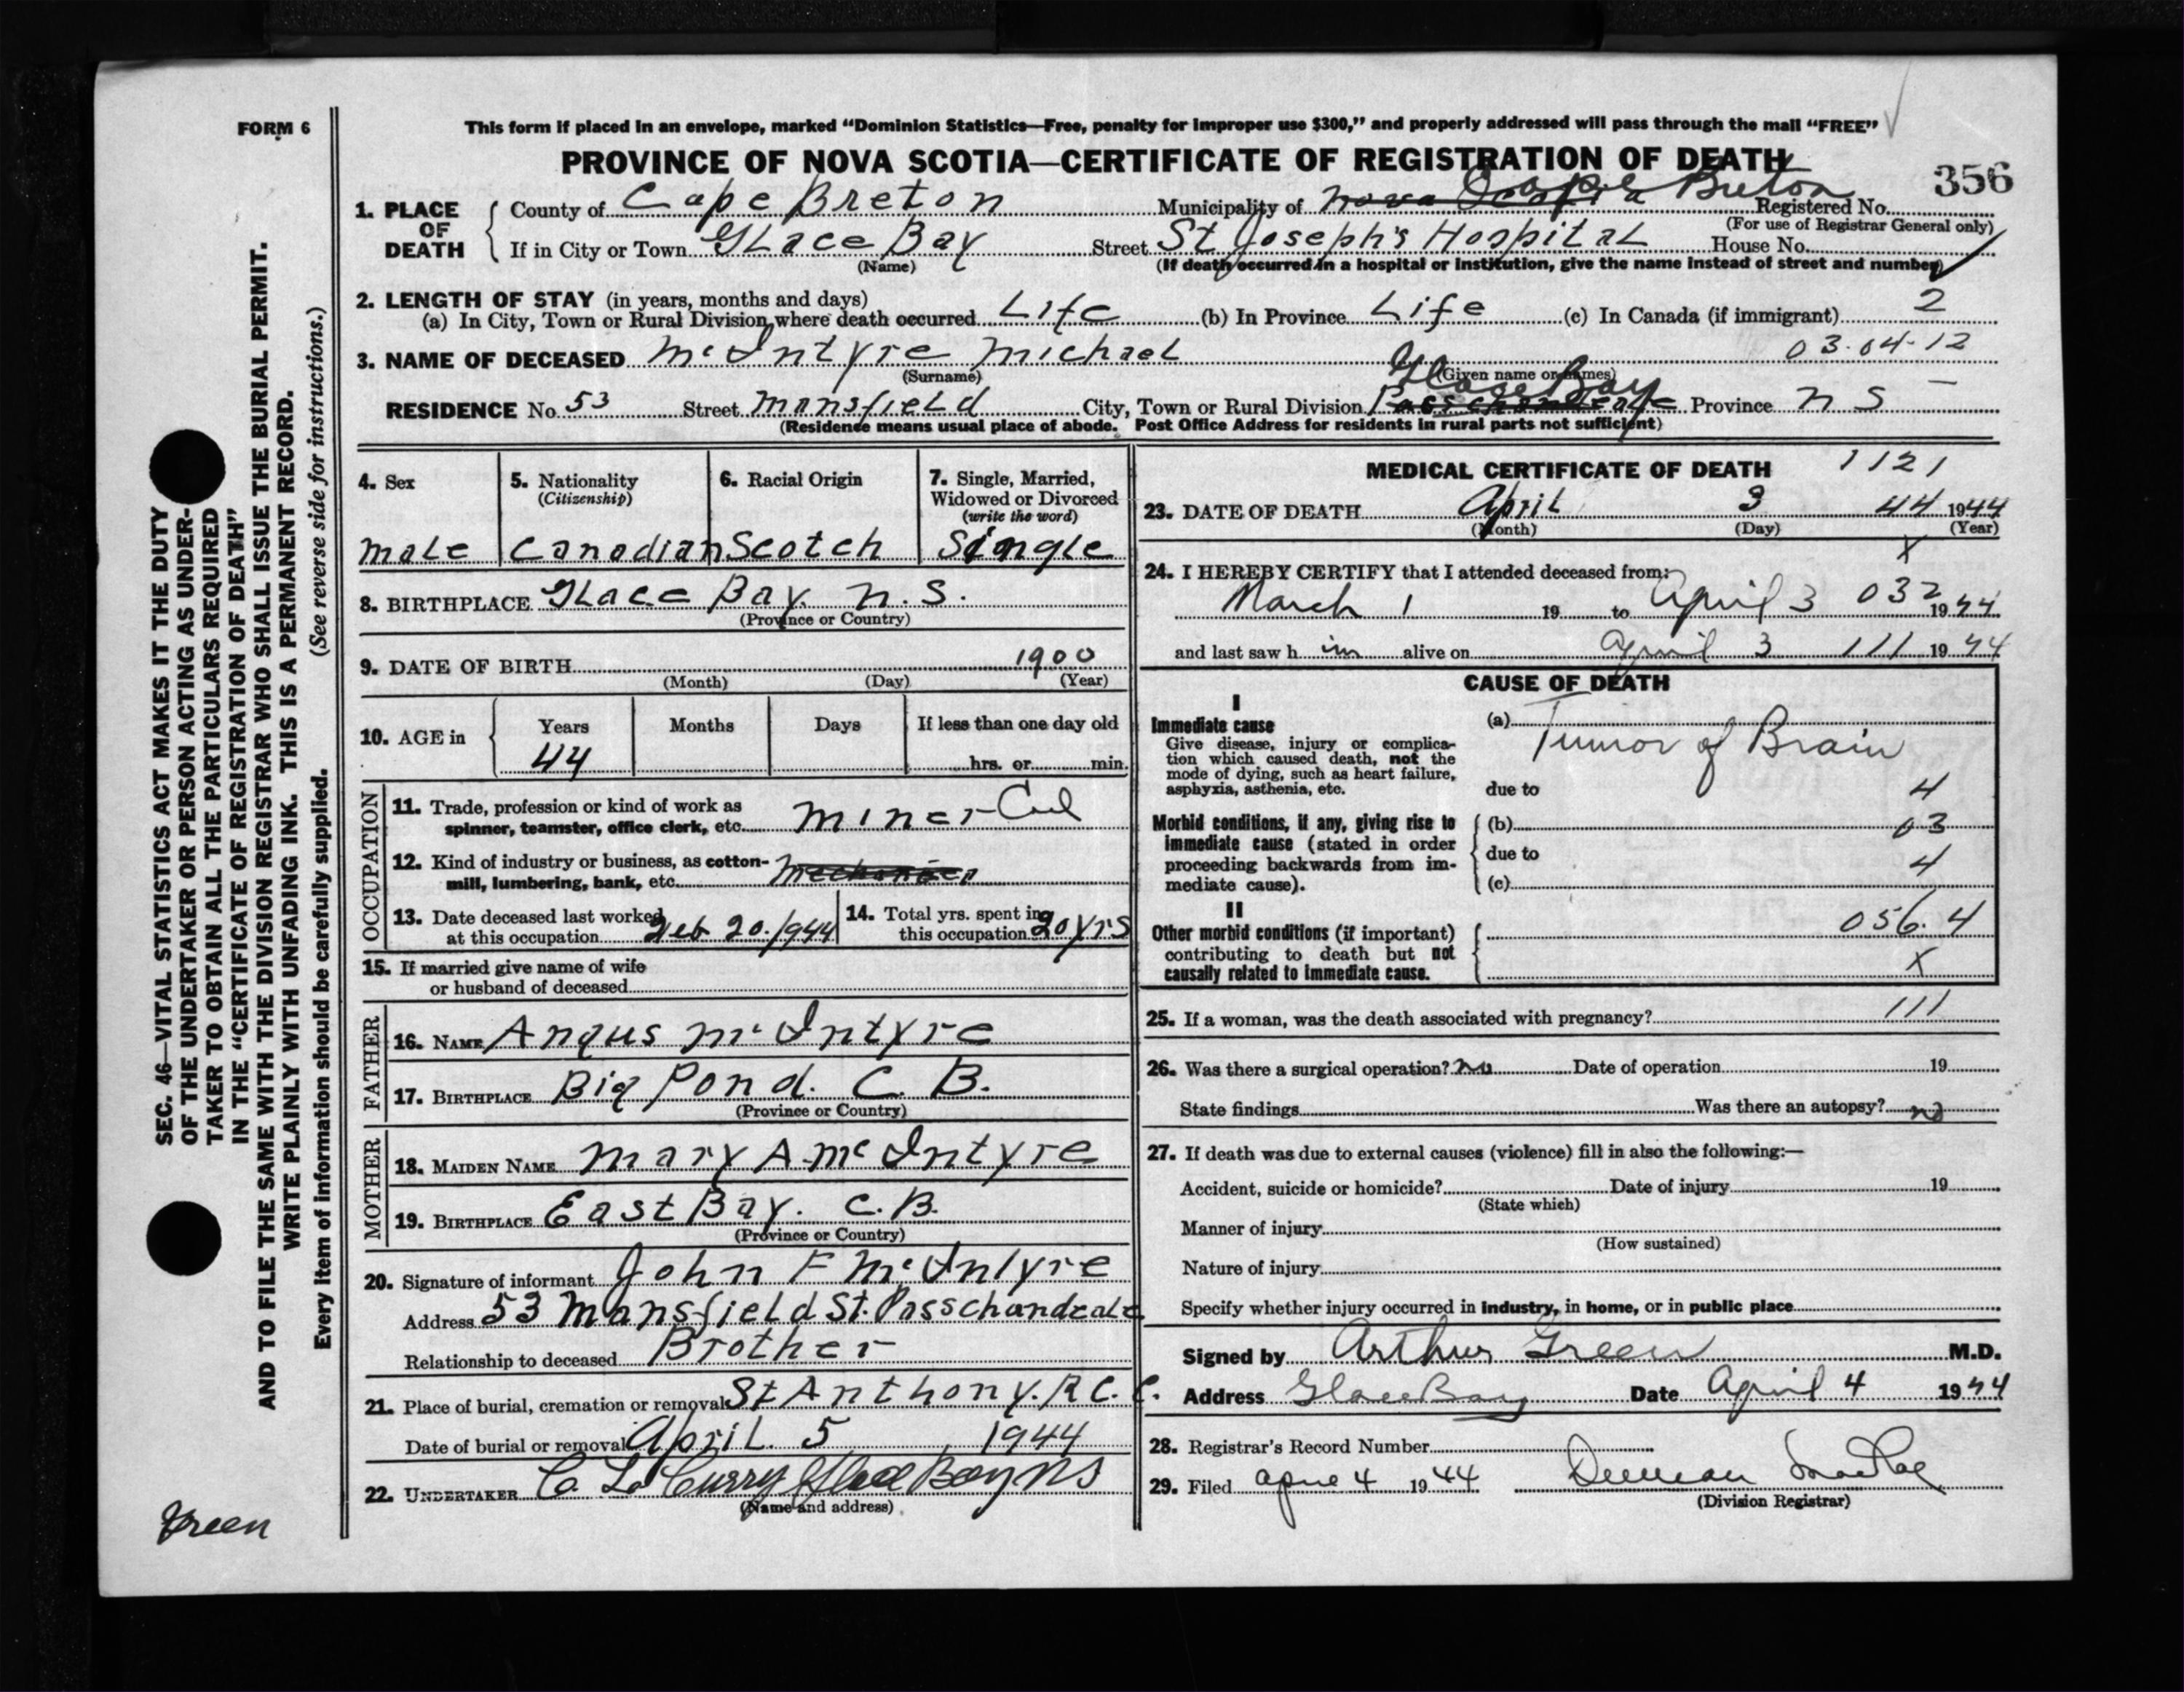 FORM 6
This form if placed in an envelope, marked "Dominion Statistics—Free, penalty for improper use $300," and properly addressed will pass through the mail "FREE"
PROVINCE OF NOVA SCOTIA—CERTIFICATE OF REGISTRATION OF DEATH
356
1. PLACE OF DEATH
County of Cape Breton Municipality of Nova Scotia Cape Breton Registered No.
(For use of Registrar General only)
If in City or Town Glace Bay Street St Joseph's Hospital House No.
(Name) (If death occurred in a hospital or institution, give the name instead of street and number)
2. LENGTH OF STAY (in years, months and days)
(a) In City, Town or Rural Division where death occurred Life (b) In Province Life (c) In Canada (if immigrant) 2
3. NAME OF DECEASED McIntyre Michael 03.04-12
(Surname) (Given name or names)
RESIDENCE No. 53 Street Mansfield City, Town or Rural Division Passchendaele Glace Bay Province N S
(Residence means usual place of abode. Post Office Address for residents in rural parts not sufficient)
SEC. 46—VITAL STATISTICS ACT MAKES IT THE DUTY
OF THE UNDERTAKER OR PERSON ACTING AS UNDER-
TAKER TO OBTAIN ALL THE PARTICULARS REQUIRED
IN THE "CERTIFICATE OF REGISTRATION OF DEATH"
AND TO FILE THE SAME WITH THE DIVISION REGISTRAR WHO SHALL ISSUE THE BURIAL PERMIT.
WRITE PLAINLY WITH UNFADING INK. THIS IS A PERMANENT RECORD.
Every item of information should be carefully supplied. (See reverse side for instructions.)
4. Sex
Male
5. Nationality
(Citizenship)
Canadian
6. Racial Origin
Scotch
7. Single, Married,
Widowed or Divorced
(write the word)
Single
8. BIRTHPLACE Glace Bay. N. S.
(Province or Country)
9. DATE OF BIRTH 1900
(Month) (Day) (Year)
10. AGE in
Years Months Days If less than one day old
44 hrs. or min.
OCCUPATION
11. Trade, profession or kind of work as
spinner, teamster, office clerk, etc. Miner-
12. Kind of industry or business, as cotton-
mill, lumbering, bank, etc.
13. Date deceased last worked
at this occupation Feb 20. 1944
14. Total yrs. spent in
this occupation 20 yrs
15. If married give name of wife
or husband of deceased
FATHER
16. NAME Angus McIntyre
17. BIRTHPLACE Big Pond. C. B.
(Province or Country)
MOTHER
18. MAIDEN NAME Mary A. McIntyre
19. BIRTHPLACE East Bay. C.B.
(Province or Country)
20. Signature of informant John F McIntyre
Address 53 Mansfield St. Passchandeale
Relationship to deceased Brother
21. Place of burial, cremation or removal St Anthony. R C. C.
Date of burial or removal April. 5 1944
22. UNDERTAKER C. L. Curry Glace Bay NS
(Name and address)
Green
MEDICAL CERTIFICATE OF DEATH 1121
23. DATE OF DEATH April 3 44 1944
(Month) (Day) (Year)
X
24. I HEREBY CERTIFY that I attended deceased from:
March 1 19 to April 3 032 1944
and last saw h im alive on April 3 111 1944
CAUSE OF DEATH
I
Immediate cause
Give disease, injury or complica-
tion which caused death, not the
mode of dying, such as heart failure,
asphyxia, asthenia, etc.
(a) Tumor of Brain
due to 4
Morbid conditions, if any, giving rise to
immediate cause (stated in order
proceeding backwards from im-
mediate cause).
(b) 03
due to 4
(c)
II
Other morbid conditions (if important)
contributing to death but not
causally related to immediate cause.
056.4
X
25. If a woman, was the death associated with pregnancy? 111
26. Was there a surgical operation? No Date of operation 19
State findings Was there an autopsy? no
27. If death was due to external causes (violence) fill in also the following:—
Accident, suicide or homicide? Date of injury 19
(State which)
Manner of injury
(How sustained)
Nature of injury
Specify whether injury occurred in industry, in home, or in public place
Signed by Arthur Green M.D.
Address Glace Bay Date April 4 1944
28. Registrar's Record Number
29. Filed April 4 1944 Duncan MacRae
(Division Registrar)